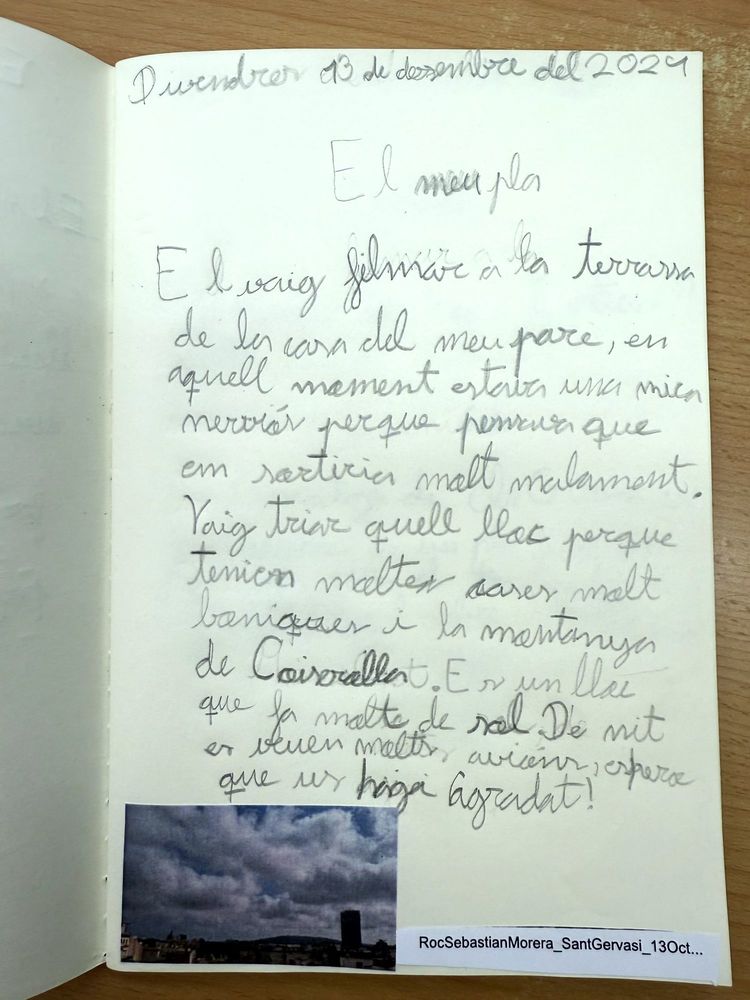 Divendres 13 de desembre del 2024
El meu pla
El vaig filmar a la terrassa
de la casa del meu pare, en
aquell moment estava una mica
nerviós perque pensava que
em sortiria molt malament.
Vaig triar quell lloc perque
tenien moltes cases molt
boniques i la montanya
de Coiserolla. Es un lloc
que fa molta de sol. De nit
es veuen molts avions, espero
que us hagi agradat!
RocSebastianMorera_SantGervasi_13Oct...